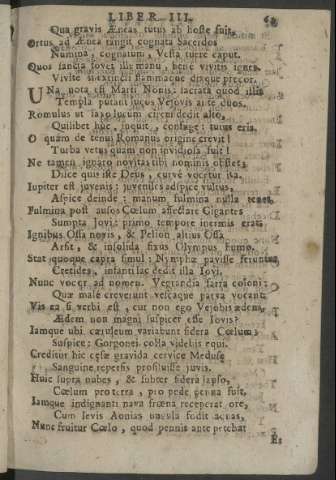 LIBER III.
Qua gravis Æneas tutus ab hoste fuit.
Ortus ab Ænea tangit cognata Sacerdos
Numina, cognatum, Vesta tuere caput.
Quos sancta fovet ille manu, bene vivitis ignes.
Vivite inextincti flammaque duxque precor.
UNa nota est Marti Nonis: sacrata quod illis
Templa putant lucos Vejovis ante duos.
Romulus ut saxo lucum circundedit alto,
Quilibet huc, inquit, confuge: tutus eris.
O quàm de tenui Romanus origine crevit!
Turba vetus quam non invidiosa fuit!
Ne tamen ignaro novitas tibi nominis obstet;
Disce quis iste Deus, curvè vocetur ita.
Iupiter est juvenis: juveniles adspice vultus,
Aspice deinde: manum fulmina nulla tenet.
Fulmina post ausos Cœlum affectare Gigantes
Sumpta Jovi: primo tempore inermis erat.
Ignibus Ossa novis, & Pelion altius Ossa
Arsit, & in solida fixus Olympus humo.
Stat quoque capra simul: Nymphæ pavisse feruntur
Cretides, infanti lac dedit illa Jovi.
Nunc vocor ad nomen. Vegrandia farra coloni:
Quæ malè creverunt vescaque parva vocant.
Vis ea si verbi est, cur non ego Vejovis ædem,
Ædem non magni suspicer esse Jovis?
Iamque ubi cæruleum variabunt sidera Cœlum;
Suspice: Gorgonei colla videbis equi.
Creditur hic cæsæ gravida cervice Medusæ
Sanguine respersis prosiluisse juvis.
Huic supra nubes, & subter sidera lapso,
Cœlum pro terra, pro pede penna fuit,
Iamque indignanti nova fræna receperat ore,
Cum levis Aonias ungula fodit aquas,
Nunc fruitur Cœlo, quod pennis ante petebat
Et